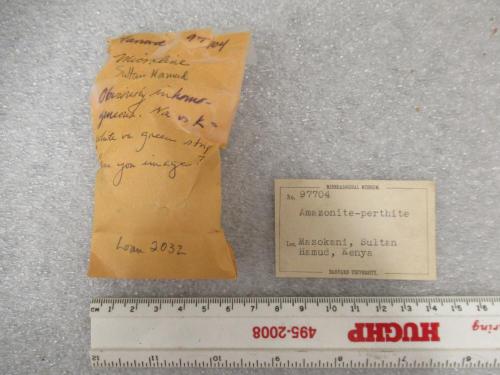 Harvard 97704
Microcline
Sultan Hamud
Obviously inhomo-
geneous. Na vs K =
white vs green strip
Can you image?
Loan 2032
MINERALOGICAL MUSEUM.
No. 97704
Amazonite-perthite
Loc. Masokani, Sultan
Hamud, Kenya
HARVARD UNIVERSITY.
CM 1 2 3 4 5 6 7 8 9 10 11 12 13 14 15 16 17 18
495-2008 HUGHP
12 11 10 9 8 7